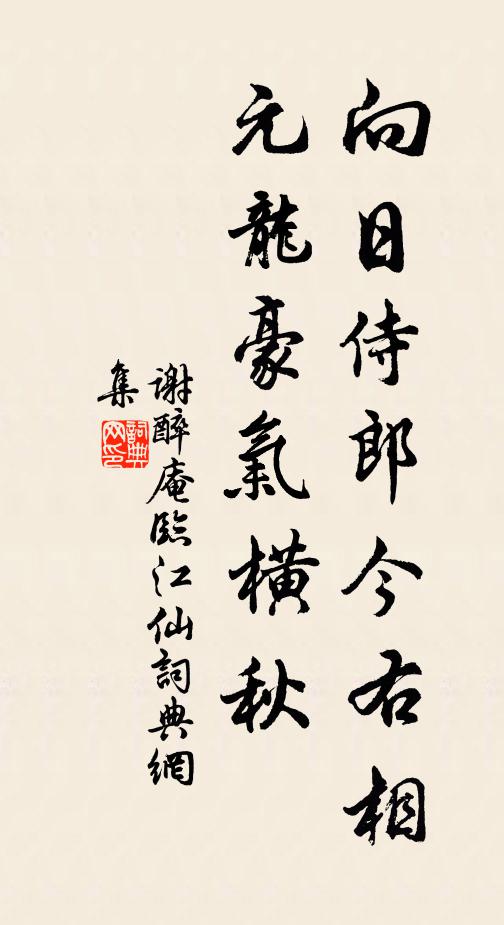 向日侍郎今右相
元龍豪氣橫秋
謝醉庵臨江仙詞典網
集
詞典網印